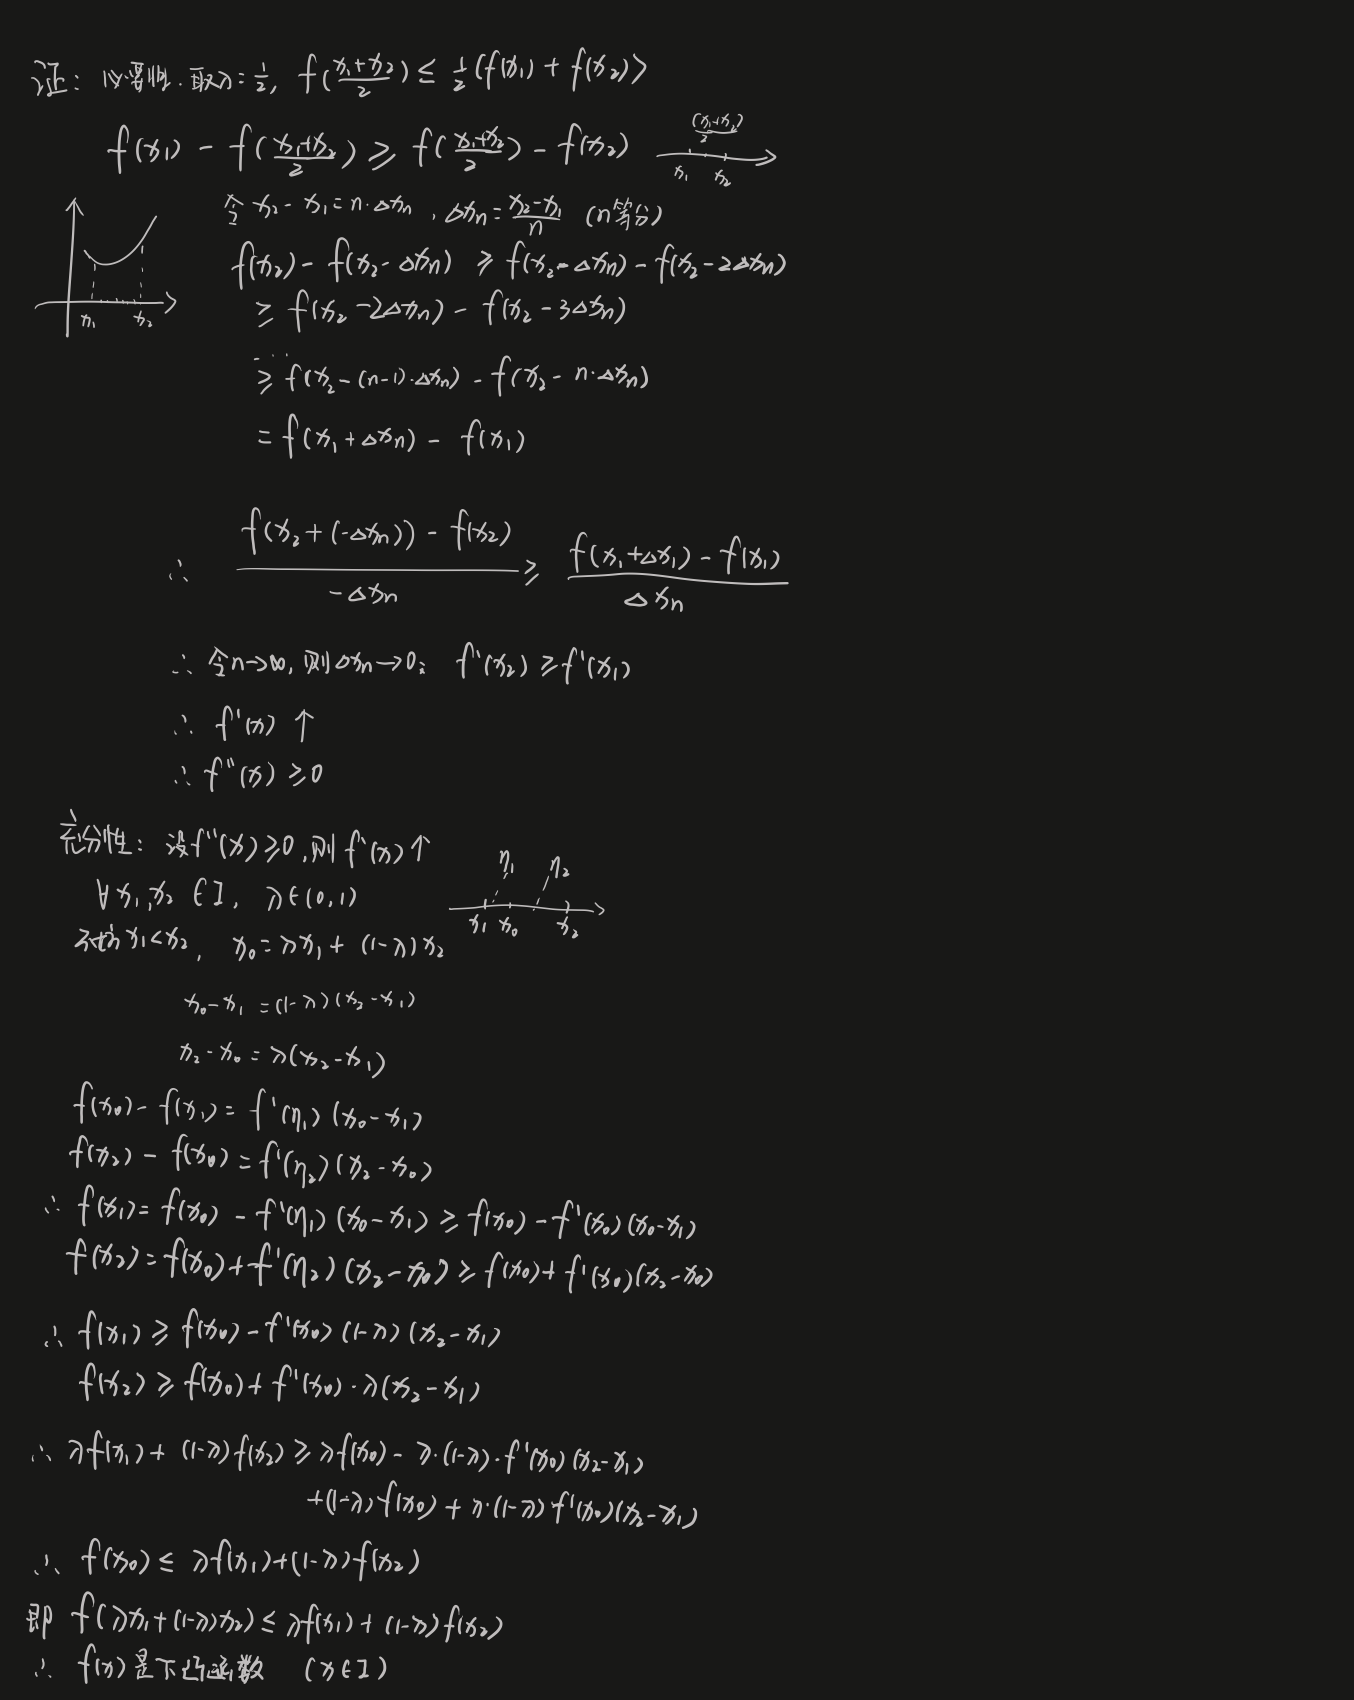 证: 必要性. 取λ=1/2, f((x₁+x₂)/2) ≤ 1/2(f(x₁) + f(x₂))
f(x₁) - f((x₁+x₂)/2) ≥ f((x₁+x₂)/2) - f(x₂)
(x₁+x₂)/2
x₁ x₂
令 x₂ - x₁ = n·△xₙ , △xₙ = (x₂-x₁)/n (n等分)
f(x₂) - f(x₂-△xₙ) ≥ f(x₂-△xₙ) - f(x₂-2△xₙ)
≥ f(x₂-2△xₙ) - f(x₂-3△xₙ)
x₁ x₂
...
≥ f(x₂-(n-1)·△xₙ) - f(x₂-n·△xₙ)
= f(x₁+△xₙ) - f(x₁)
∴ (f(x₂+(-△xₙ)) - f(x₂))/(-△xₙ) ≥ (f(x₁+△x₁) - f(x₁))/(△xₙ)
∴ 令n→∞, 则△xₙ→0: f'(x₂) ≥ f'(x₁)
∴ f'(x) ↑
∴ f''(x) ≥ 0
充分性: 设f''(x) ≥ 0, 则f'(x)↑
∀x₁,x₂ ∈ I, λ∈(0,1)
η₁ η₂
x₁ x₀ x₂
不妨x₁<x₂, x₀ = λx₁ + (1-λ)x₂
x₀-x₁ = (1-λ)(x₂-x₁)
x₂-x₀ = λ(x₂-x₁)
f(x₀) - f(x₁) = f'(η₁)(x₀-x₁)
f(x₂) - f(x₀) = f'(η₂)(x₂-x₀)
∴ f(x₁) = f(x₀) - f'(η₁)(x₀-x₁) ≥ f(x₀) - f'(x₀)(x₀-x₁)
f(x₂) = f(x₀) + f'(η₂)(x₂-x₀) ≥ f(x₀) + f'(x₀)(x₂-x₀)
∴ f(x₁) ≥ f(x₀) - f'(x₀)(1-λ)(x₂-x₁)
f(x₂) ≥ f(x₀) + f'(x₀)·λ(x₂-x₁)
∴ λf(x₁) + (1-λ)f(x₂) ≥ λf(x₀) - λ·(1-λ)·f'(x₀)(x₂-x₁)
+(1-λ)f(x₀) + λ·(1-λ)f'(x₀)(x₂-x₁)
∴ f(x₀) ≤ λf(x₁)+(1-λ)f(x₂)
即 f(λx₁+(1-λ)x₂) ≤ λf(x₁) + (1-λ)f(x₂)
∴ f(x)是下凸函数 (x∈I)